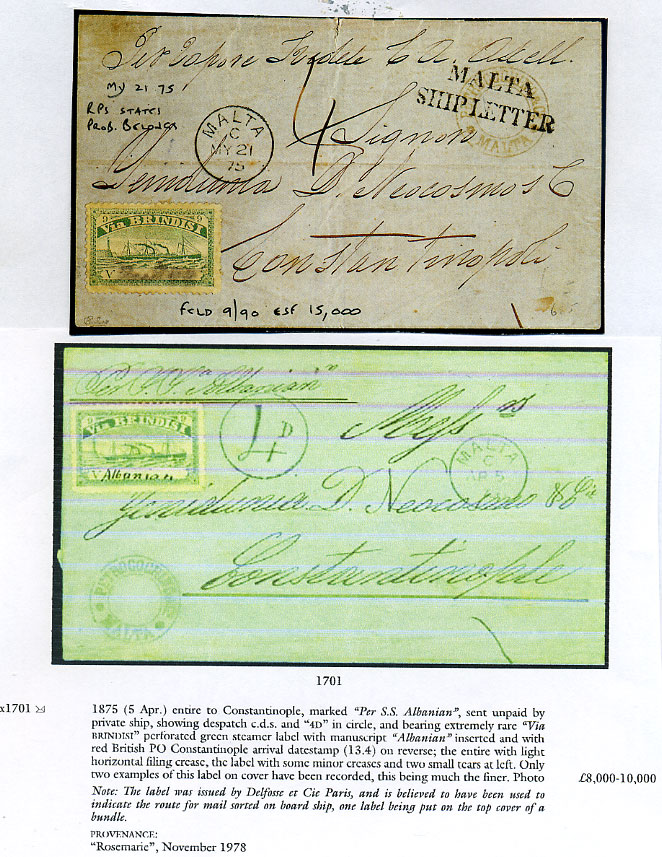 Per Vapore
MALTA
SHIP LETTER
My 21 75
RPS STATES
PROB. BELONGS
MALTA
C
MY 21
75
MALTA
Signori
D. Neocosmos C
Constantinopoli
2 2
Via BRINDISI
V
FELD 9/90 ESF 15,000
Per S.S. "Albanian"
Messrs
2 2
Via BRINDISI
V Albanian
4D
MALTA
C
AP 5
D. Neocosmo & Cie
Constantinople
MALTA
1701
x1701
1875 (5 Apr.) entire to Constantinople, marked "Per S.S. Albanian", sent unpaid by
private ship, showing despatch c.d.s. and "4D" in circle, and bearing extremely rare "Via
BRINDISI" perforated green steamer label with manuscript "Albanian" inserted and with
red British PO Constantinople arrival datestamp (13.4) on reverse; the entire with light
horizontal filing crease, the label with some minor creases and two small tears at left. Only
two examples of this label on cover have been recorded, this being much the finer. Photo
£8,000-10,000
Note: The label was issued by Delfosse et Cie Paris, and is believed to have been used to
indicate the route for mail sorted on board ship, one label being put on the top cover of a
bundle.
PROVENANCE:
"Rosemarie", November 1978